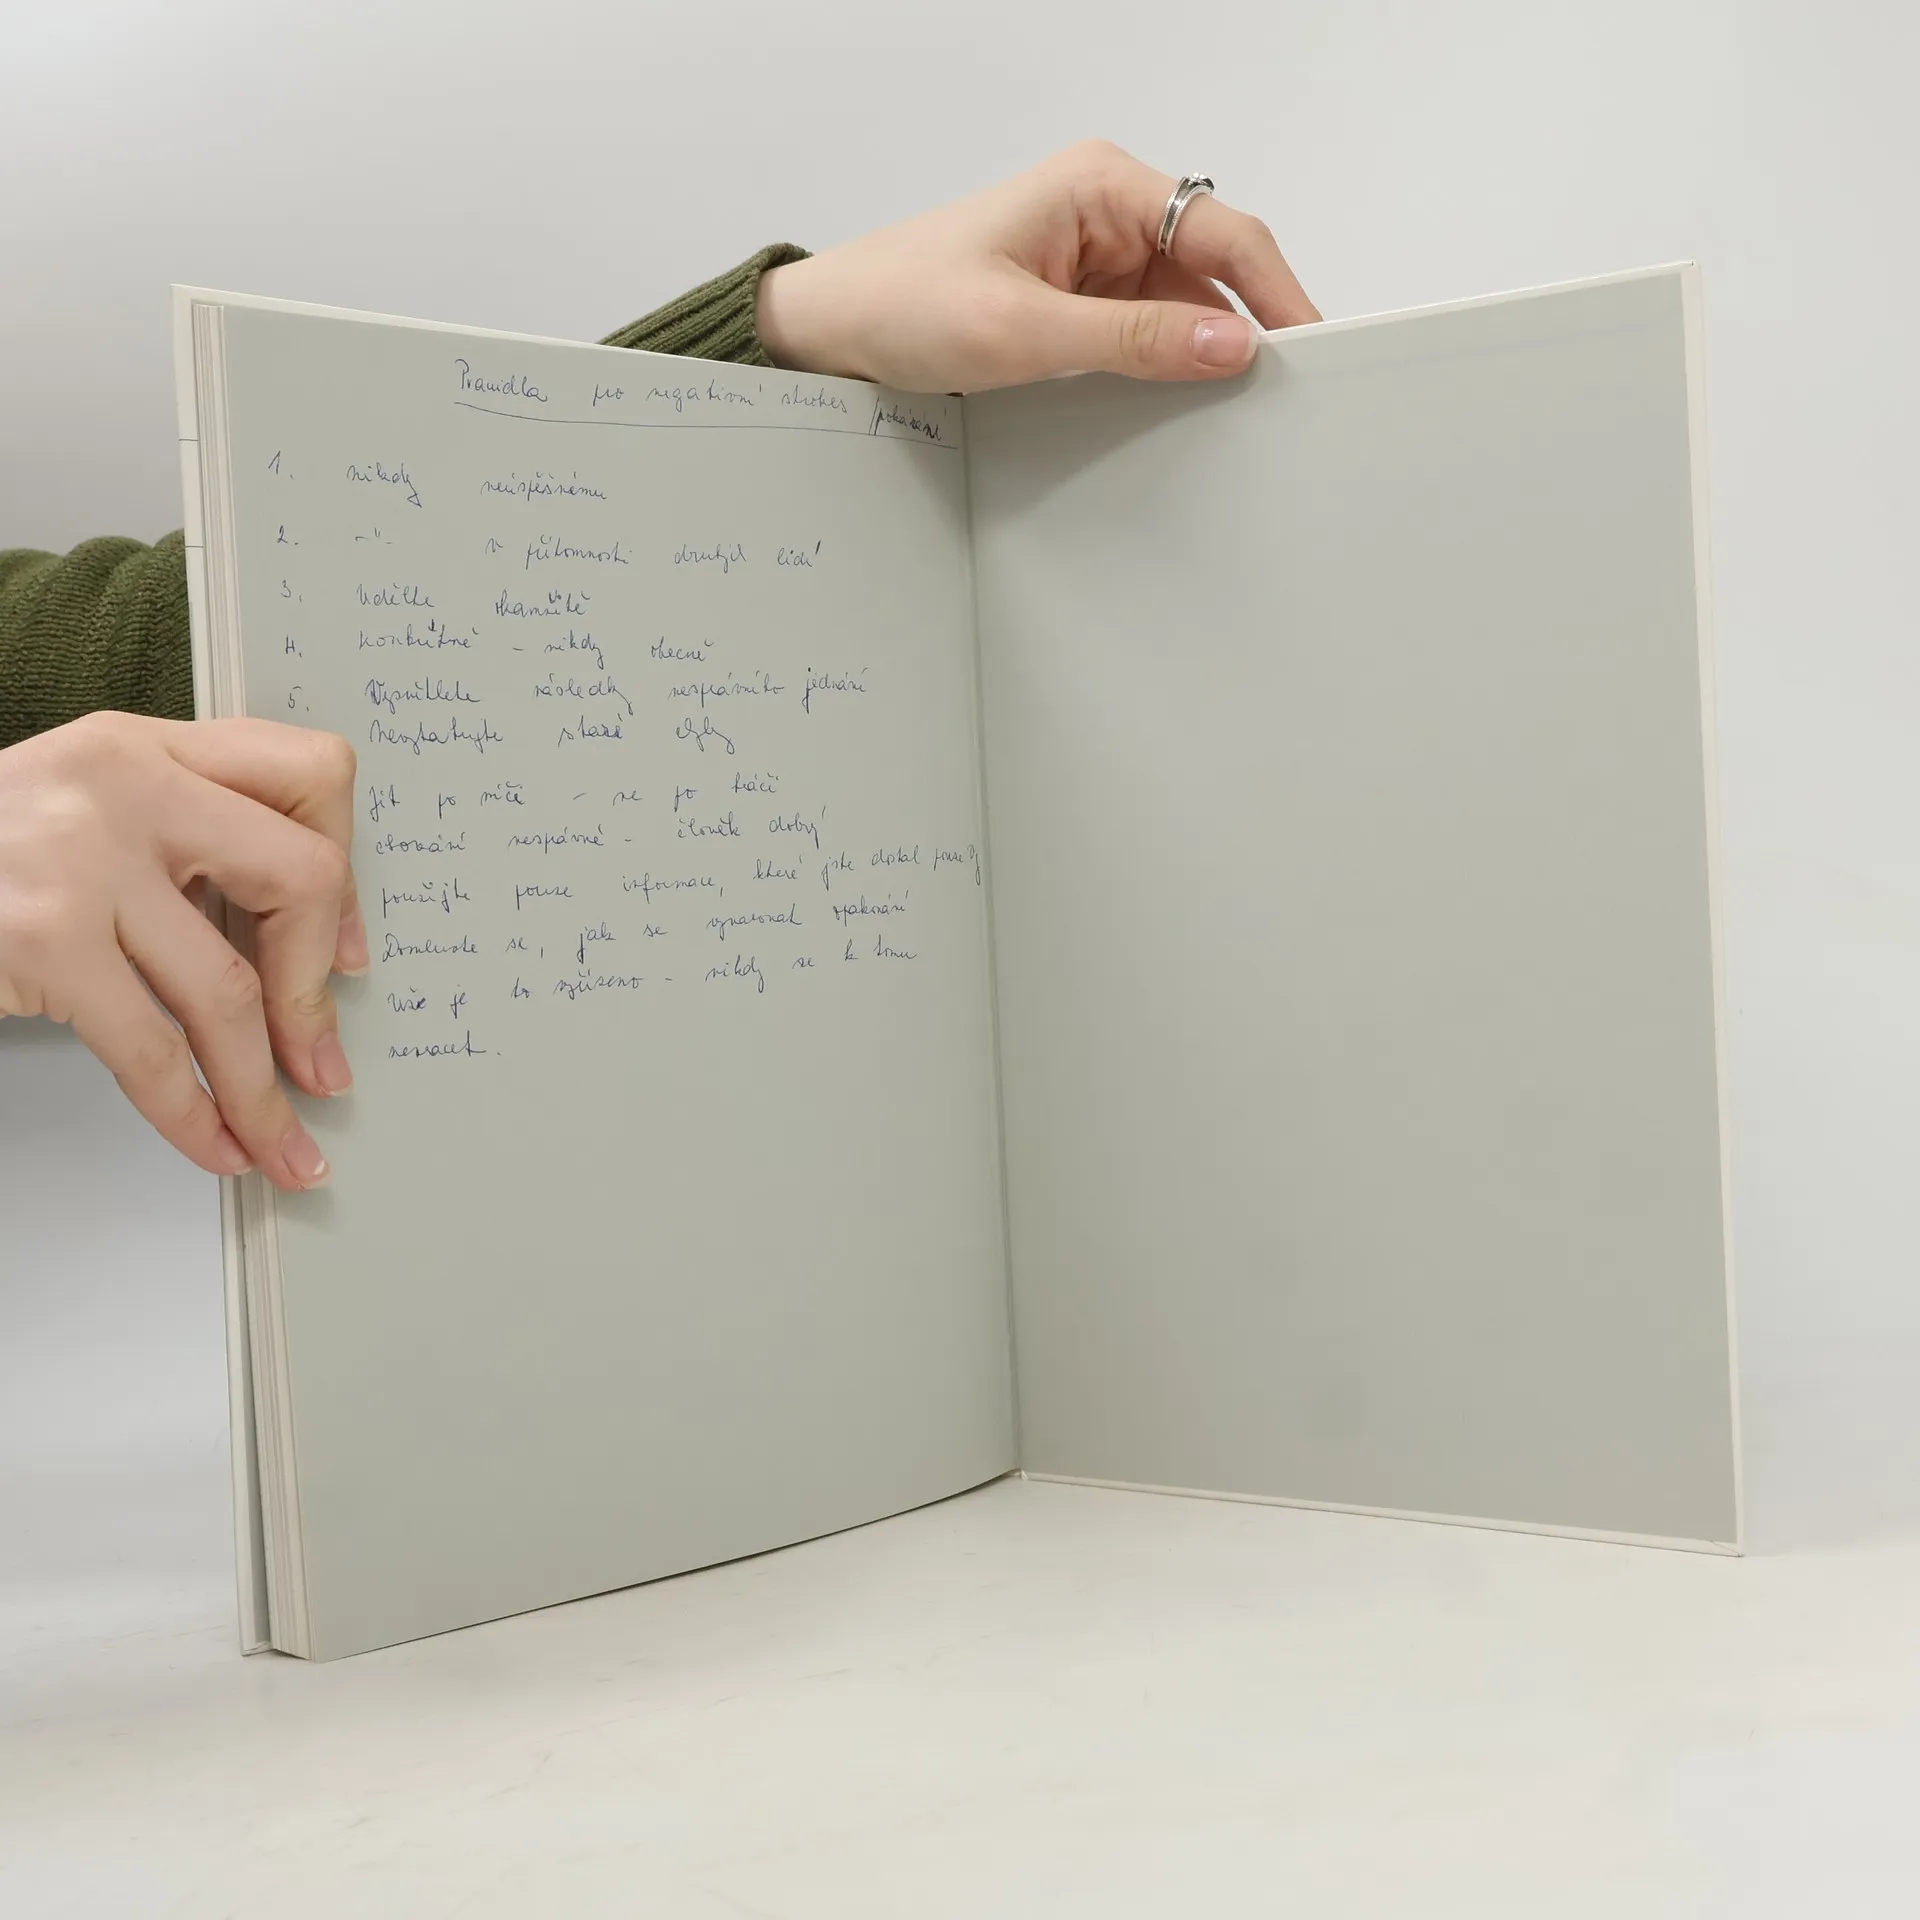 Pravidla pro negativní strokes /pokárání
1. nikdy neúspěšnému
2. -"- v přítomnosti druhých lidí
3. Udělte okamžitě
4. Konkrétně - nikdy obecně
5. Vysvětlete následky nesprávného jednání
Nevytahujte staré chyby
Jít po míči - ne po hráči
chování nesprávné - člověk dobrý
použijte pouze informace, které jste dostal pouze Vy
Domluvte se, jak se vyvarovat opakování
Vše je to vyřízeno - nikdy se k tomu
nevracet.